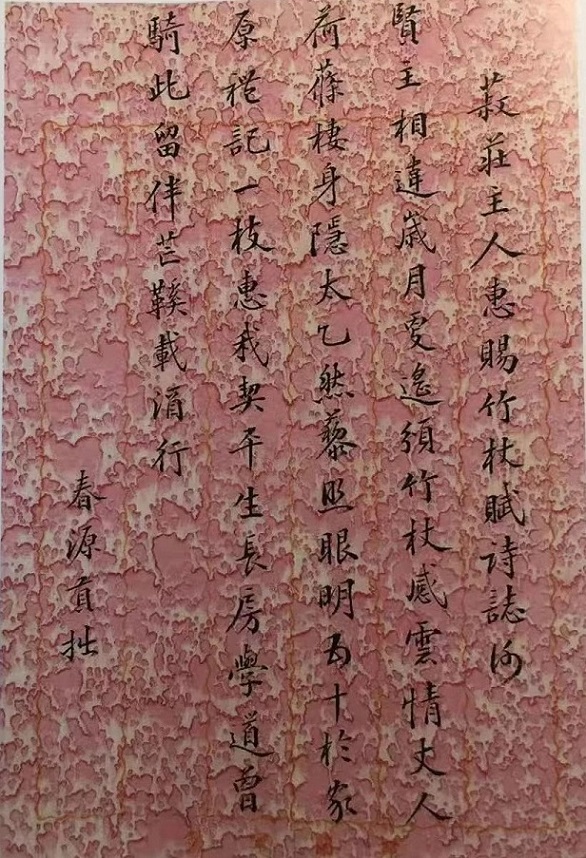 菽莊主人惠賜竹杖賦詩誌謝
賢主相違歲月更遙頒竹杖感雲情丈人
荷蓧棲身隱太乙然藜照眼明五十於家
原禮記一枝惠我契平生長房學道曾
騎此留伴芒鞵載酒行
春源貢拙